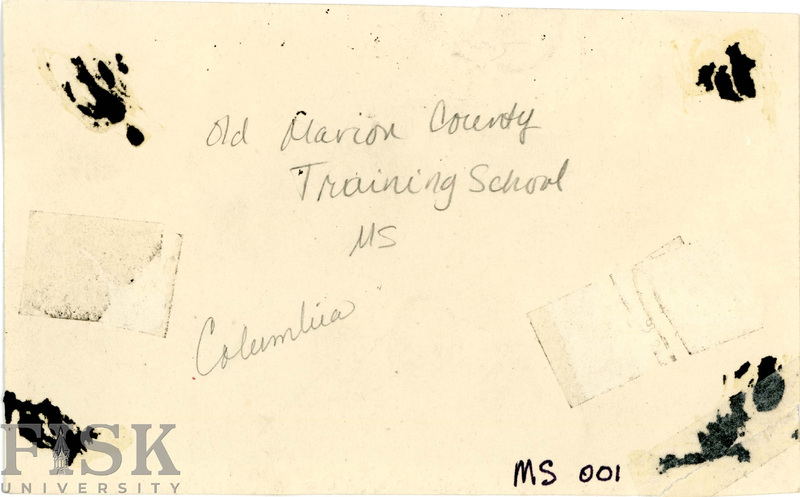 Old Marion County
Training School
MS
Columbia
FISK
UNIVERSITY
MS 001